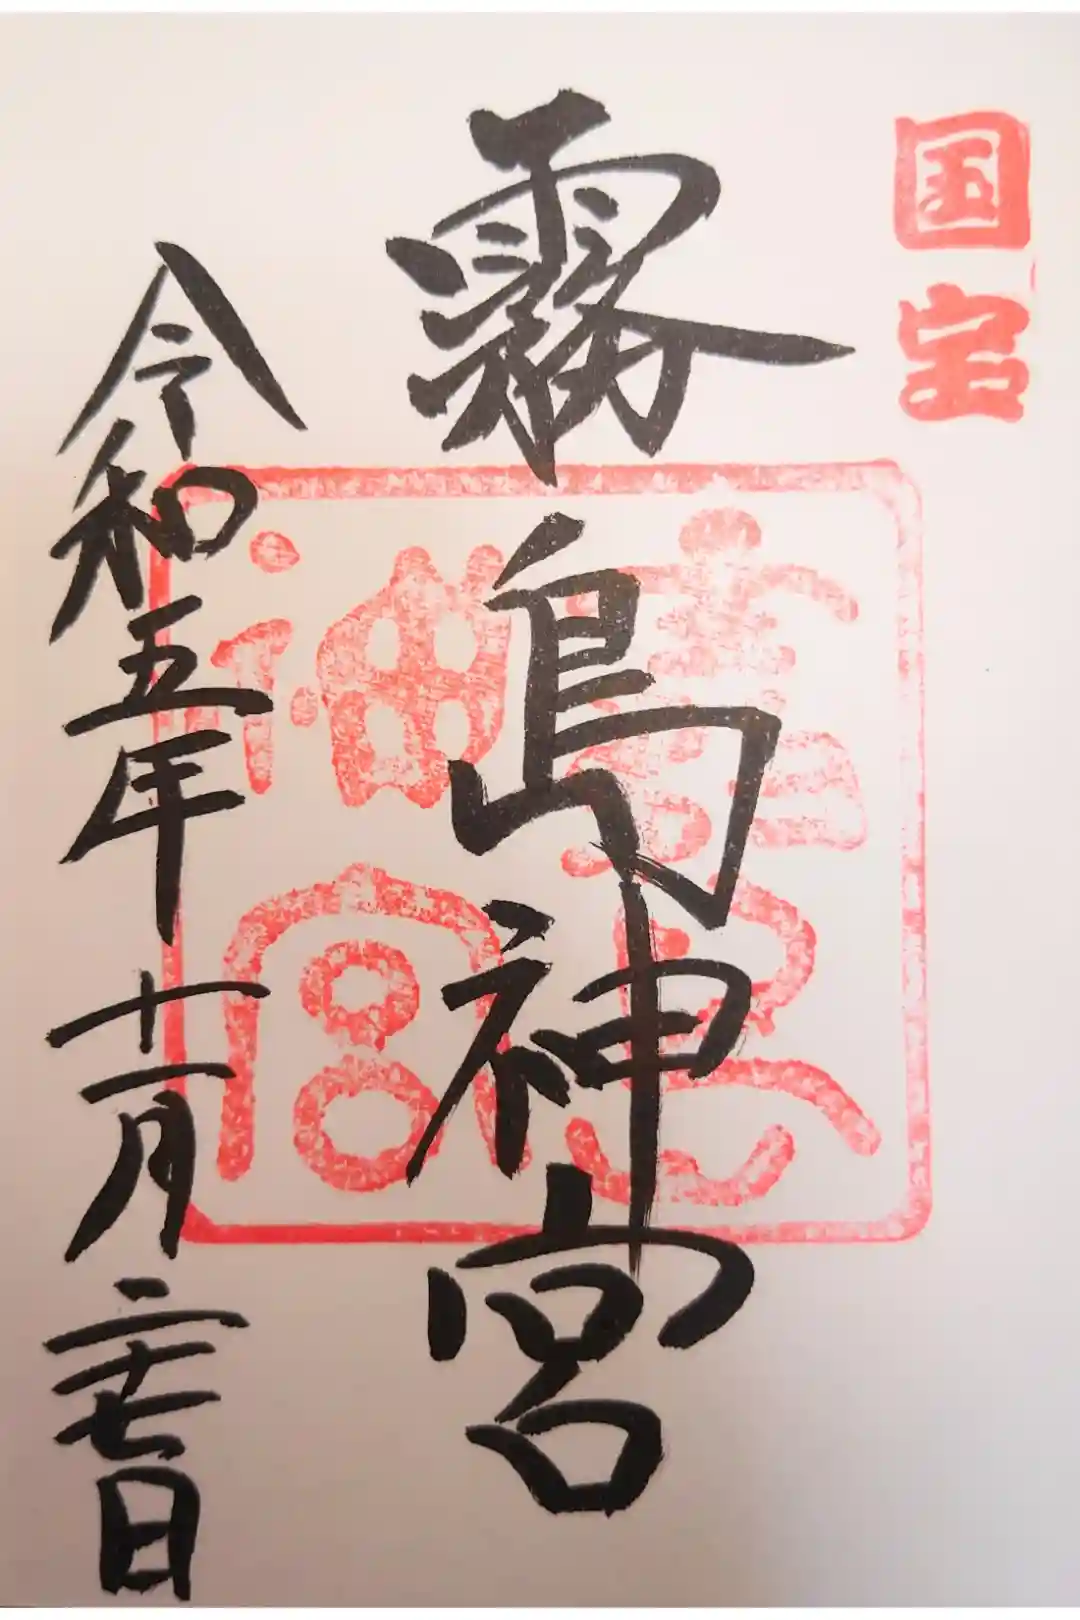 国宝
霧島神宮
令和五年十一月二十七日